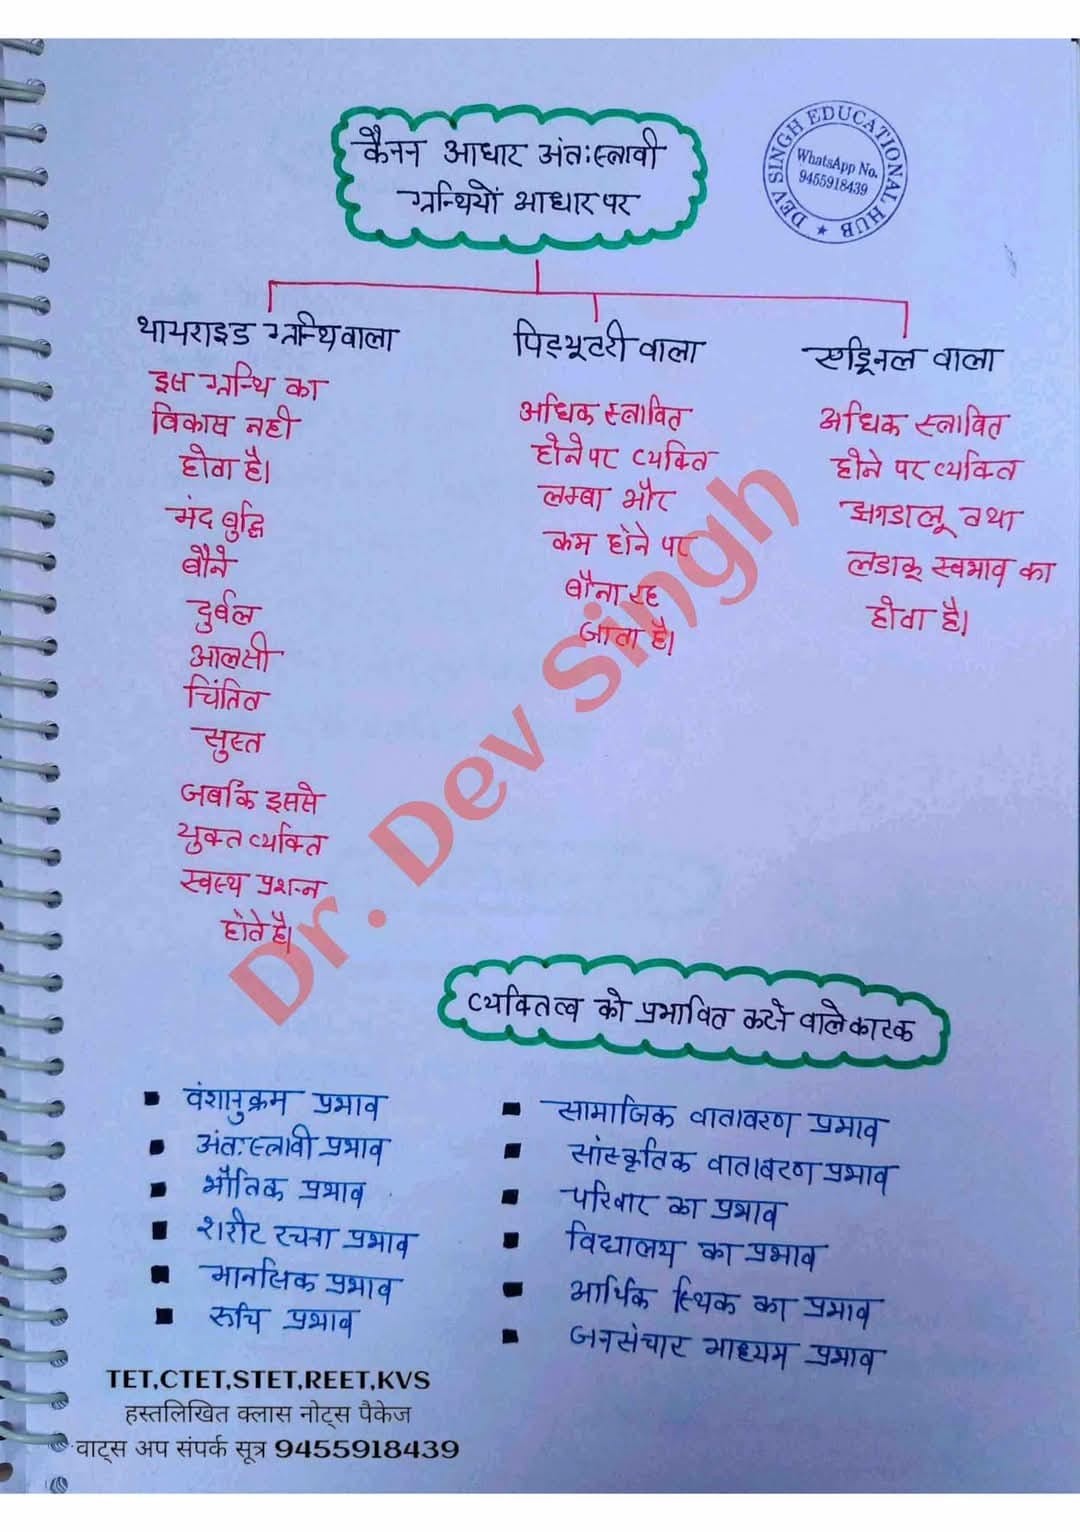 कैनन आधार अंतःस्त्रावी
ग्रन्थियों आधार पर
DEV SINGH EDUCATIONAL HUB
WhatsApp No.
9455918439
थायराइड ग्रन्थि वाला
इस ग्रन्थि का
विकास नही
होता है।
मंद बुद्धि
बौने
दुर्बल
आलसी
चिंतित
सुस्त
जबकि इससे
युक्त व्यक्ति
स्वस्थ प्रशन्न
होते है।
पिट्यूटरी वाला
अधिक स्त्रावित
होने पर व्यक्ति
लम्बा और
कम होने पर
बौना रह
जाता है।
एड्रिनल वाला
अधिक स्त्रावित
होने पर व्यक्ति
झगडालू तथा
लडाकू स्वभाव का
होता है।
Dr. Dev Singh
व्यक्तित्व को प्रभावित करने वाले कारक
वंशानुक्रम प्रभाव
अंतःस्त्रावी प्रभाव
भौतिक प्रभाव
शरीर रचना प्रभाव
मानसिक प्रभाव
रूचि प्रभाव
सामाजिक वातावरण प्रभाव
सांस्कृतिक वातावरण प्रभाव
परिवार का प्रभाव
विद्यालय का प्रभाव
आर्थिक स्थिक का प्रभाव
जनसंचार माध्यम प्रभाव
TET,CTET,STET,REET,KVS
हस्तलिखित क्लास नोट्स पैकेज
वाट्स अप संपर्क सूत्र 9455918439